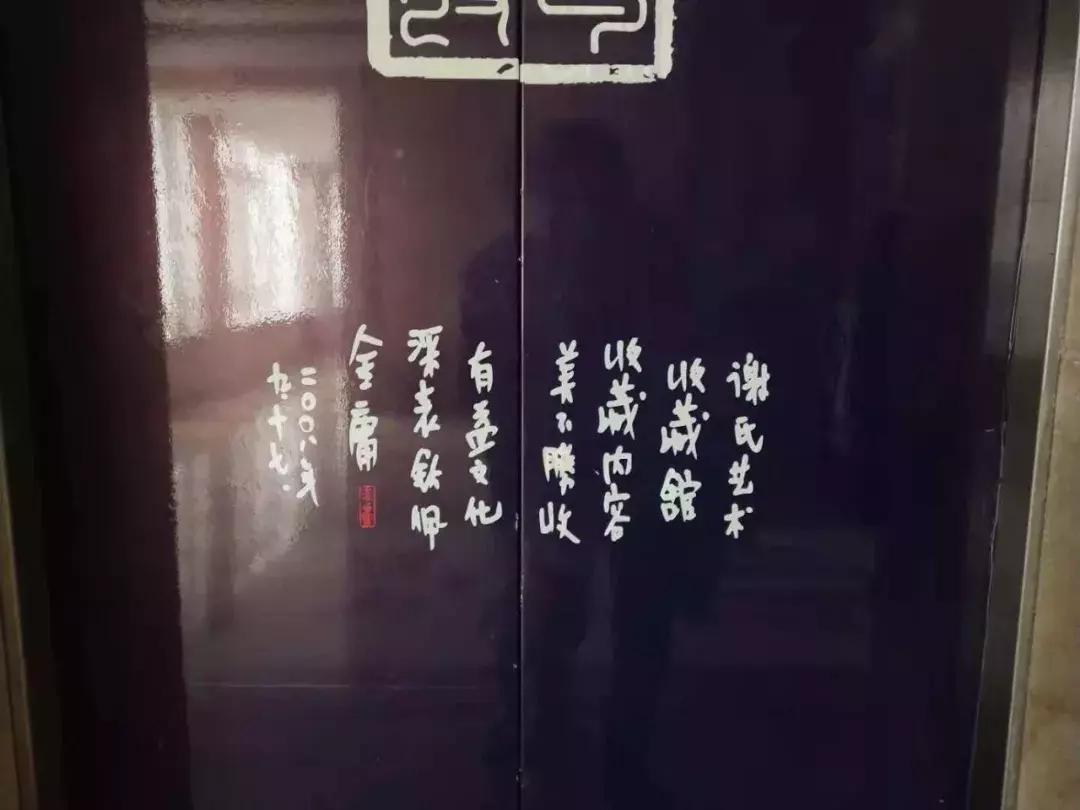 谢氏艺术
收藏館
收藏内容
美不勝收
有益文化
深表钦佩
金庸
二〇〇八年
九·十七·